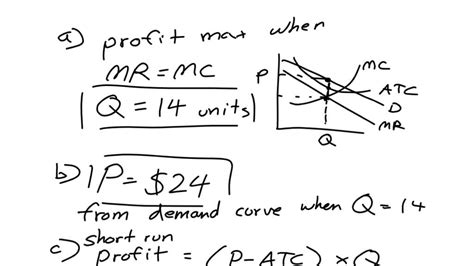 a) profit max when
MR = MC
Q = 14 units
P
MC
ATC
D
MR
Q
b) P = $24
from demand curve when Q = 14
c) short run
profit = (P-ATC) × Q